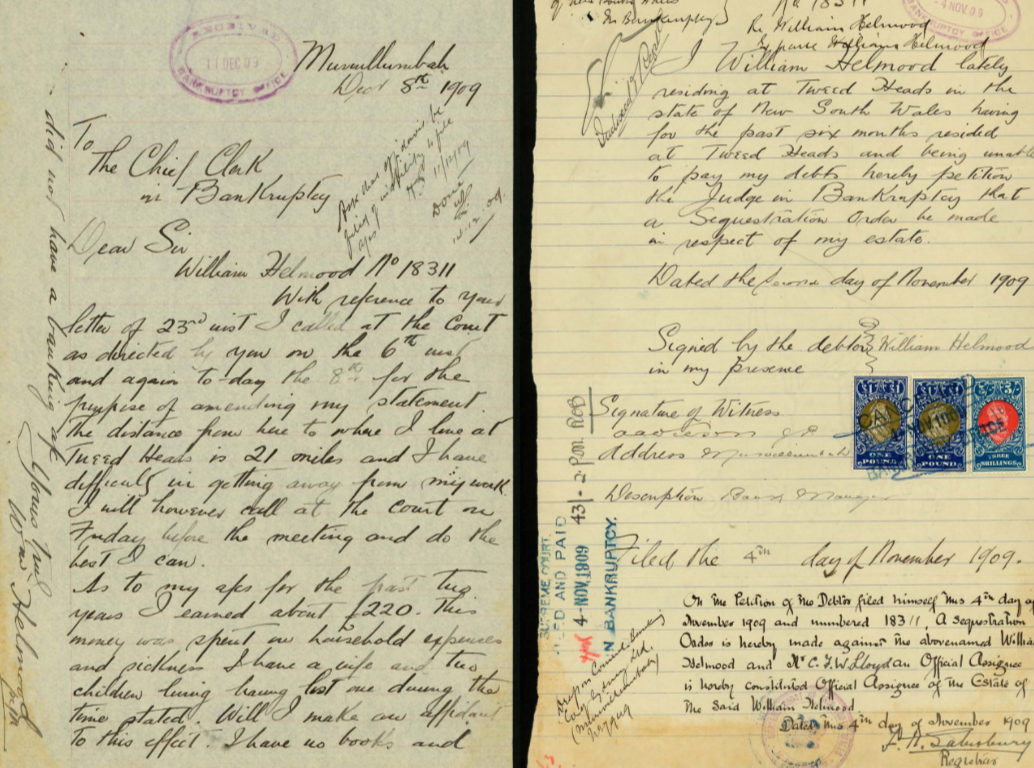 RECEIVED
11 DEC 09
BANKRUPTCY OFFICE
Murwillumbah
Dect 8th 1909
To
The Chief Clerk
in Bankruptcy
Dear Sir
William Helmood No 18311
With reference to your
letter of 23rd inst I called at the Court
as directed by you on the 6th inst
and again to-day the 8th for the
purpose of amending my statement.
the distance from here to where I live at
Tweed Heads is 21 miles and I have
difficulty in getting away from my work.
I will however call at the Court on
Friday before the meeting and do the
best I can.
As to my afs for the past two
years I earned about £220. This
money was spent on household expenses
and sickness I have a wife and two
children living having lost one during the
time stated. Will I make an affidavit
to this effect. I have no books and
did not have a banking a/c
Yours truly
Wm Helmood
11/12/09
Done
14.12.09
4 NOV. 09
In Bankruptcy
No 18311
Re William Helmood
Exparte William Helmood
I William Helmood lately
residing at Tweed Heads in the
state of New South Wales having
for the past six months resided
at Tweed Heads and being unable
to pay my debts hereby petition
the Judge in Bankruptcy that
a Sequestration Order be made
in respect of my estate.
Dated the second day of November 1909
Signed by the debtor William Helmood
in my presence
Signature of Witness
Address Murwillumbah
Description Bank Manager
ONE POUND
ONE POUND
THREE SHILLINGS
Filed the 4th day of November 1909.
SUPREME COURT.
FILED AND PAID
4-NOV.1909
IN BANKRUPTCY.
On the Petition of the Debtor filed himself this 4th day of
November 1909 and numbered 18311, A Sequestration
Order is hereby made against the abovenamed William
Helmood and Mr C.F.W. Lloyd an Official Assignee
is hereby constituted Official Assignee of the Estate of
the said William Helmood.
Dated this 4th day of November 1909
F. H. Salusbury
Registrar